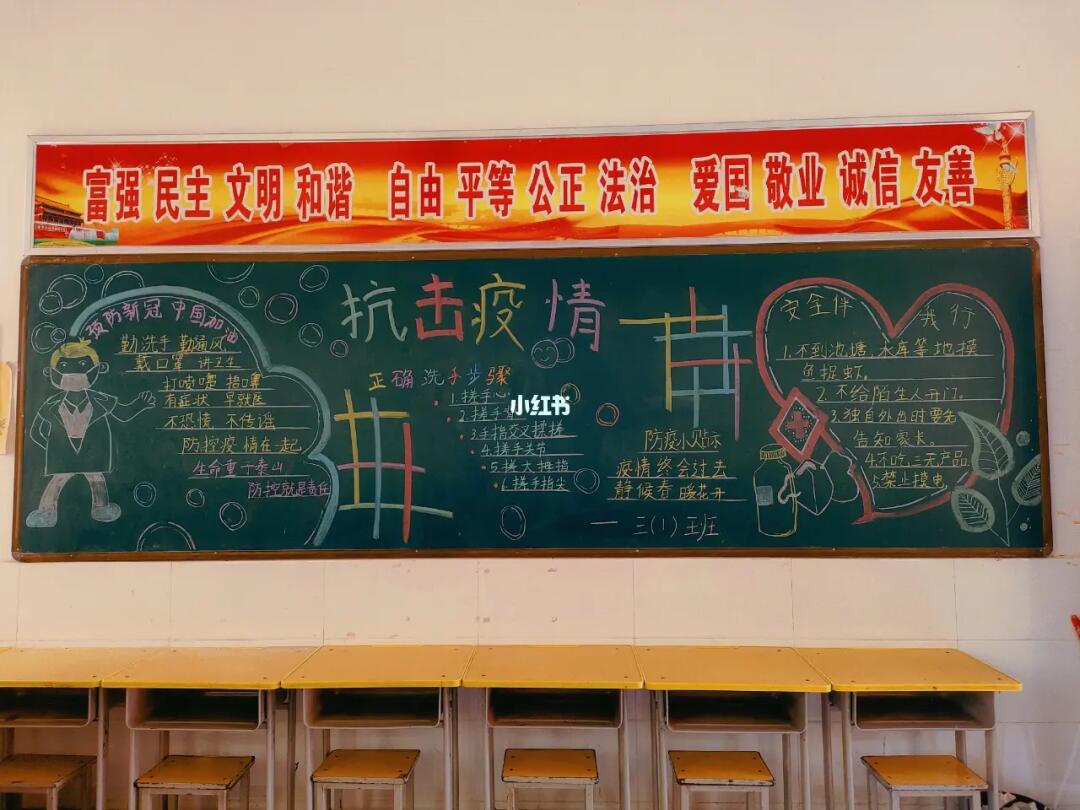 富强 民主 文明 和谐 自由 平等 公正 法治 爱国 敬业 诚信 友善
抗击疫情
预防新冠 中国加油
勤洗手 勤通风
戴口罩 讲卫生
打喷嚏 捂口鼻
有症状 早就医
不恐慌 不传谣
防控疫情在一起
生命重于泰山
防控就是责任
正确洗手步骤
1.搓手心
2.搓手背
3.手指交叉揉搓
4.搓手关节
5.搓大拇指
6.搓手指尖
小红书
防疫小贴示
疫情终会过去
静候春暖花开
一 三(1)班
安全伴我行
1.不到池塘,水库等地摸
鱼捉虾。
2.不给陌生人开门。
3.独自外出时要先
告知家长。
4.不吃三无产品
5.禁止摸电